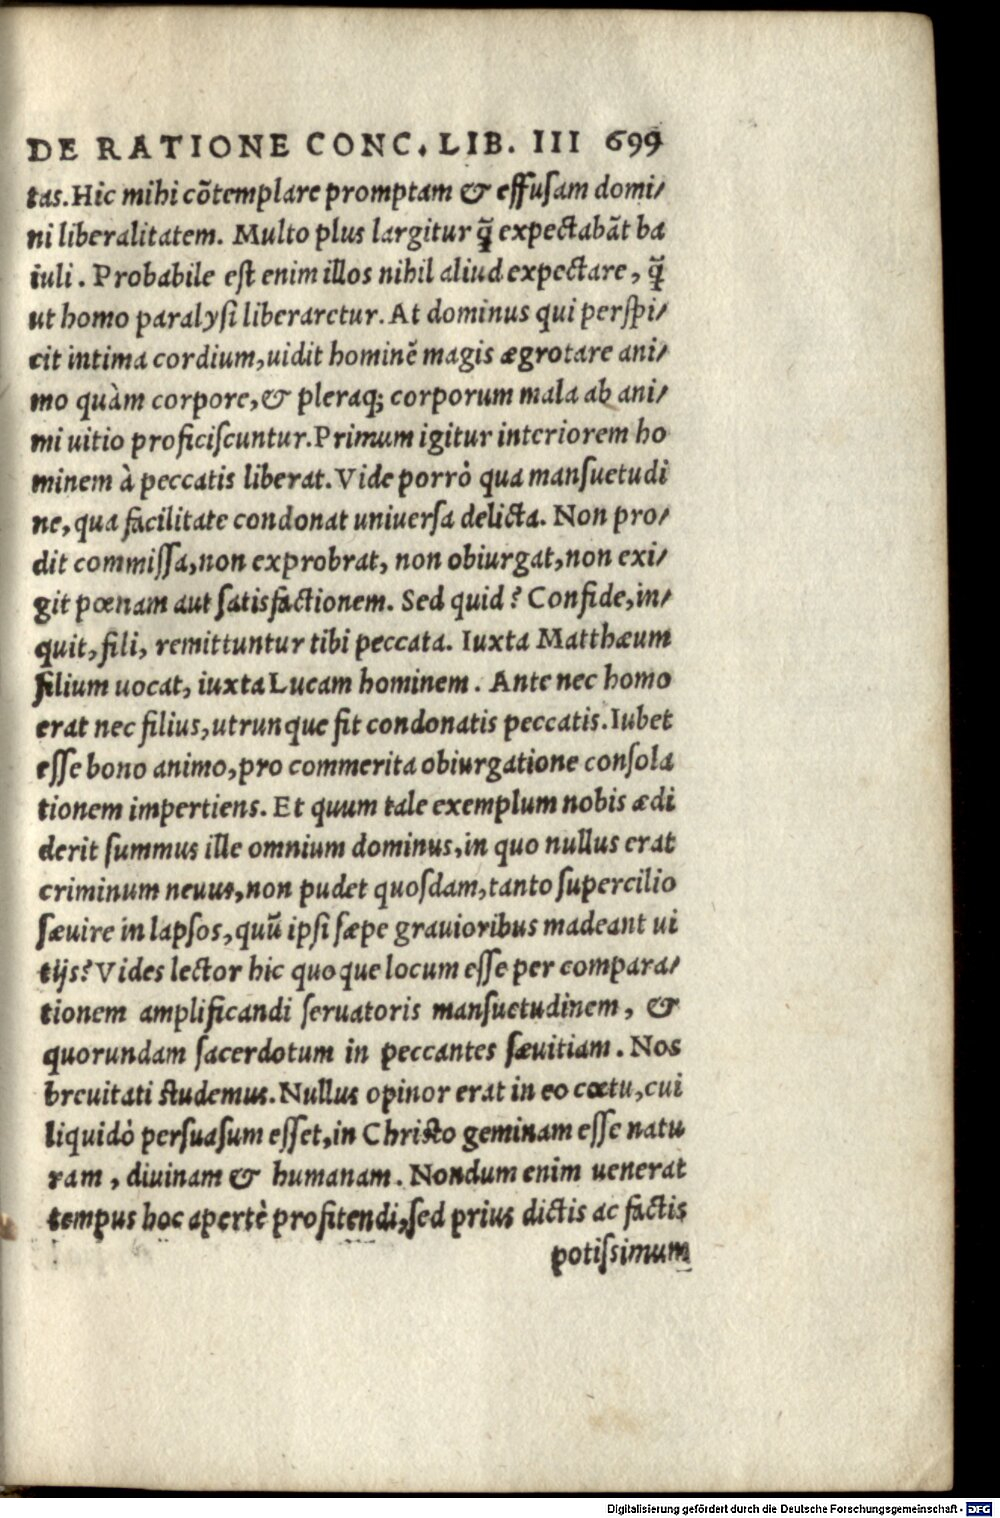 DE RATIONE CONC. LIB. III 699
tas. Hic mihi cõtemplare promptam & effuſam domi/
ni liberalitatem. Multo plus largitur q̃ expectabãt ba
iuli. Probabile eſt enim illos nihil aliud expectare, q̃
ut homo paralyſi liberaretur. At dominus qui perſpi/
cit intima cordium, uidit hominẽ magis ægrotare ani/
mo quàm corpore, & pleraq; corporum mala ab ani/
mi uitio proficiſcuntur. Primum igitur interiorem ho
minem à peccatis liberat. Vide porrò qua manſuetudi
ne, qua facilitate condonat uniuerſa delicta. Non pro/
dit commiſſa, non exprobrat, non obiurgat, non exi/
git pœnam aut ſatisfactionem. Sed quid? Confide, in/
quit, fili, remittuntur tibi peccata. Iuxta Matthæum
filium uocat, iuxta Lucam hominem. Ante nec homo
erat nec filius, utrunque fit condonatis peccatis. Iubet
eſſe bono animo, pro commerita obiurgatione conſola
tionem impertiens. Et quum tale exemplum nobis ædi
derit ſummus ille omnium dominus, in quo nullus erat
criminum neuus, non pudet quoſdam, tanto ſupercilio
ſæuire in lapſos, quũ ipſi ſæpe grauioribus madeant ui
tijs? Vides lector hic quoque locum eſſe per compara/
tionem amplificandi ſeruatoris manſuetudinem, &
quorundam ſacerdotum in peccantes ſæuitiam. Nos
breuitati ſtudemus. Nullus opinor erat in eo cœtu, cui
liquidò perſuaſum eſſet, in Chriſto geminam eſſe natu
ram, diuinam & humanam. Nondum enim uenerat
tempus hoc apertè profitendi, ſed prius dictis ac factis
potiſsimum
Digitalisierung gefördert durch die Deutsche Forschungsgemeinschaft - DFG